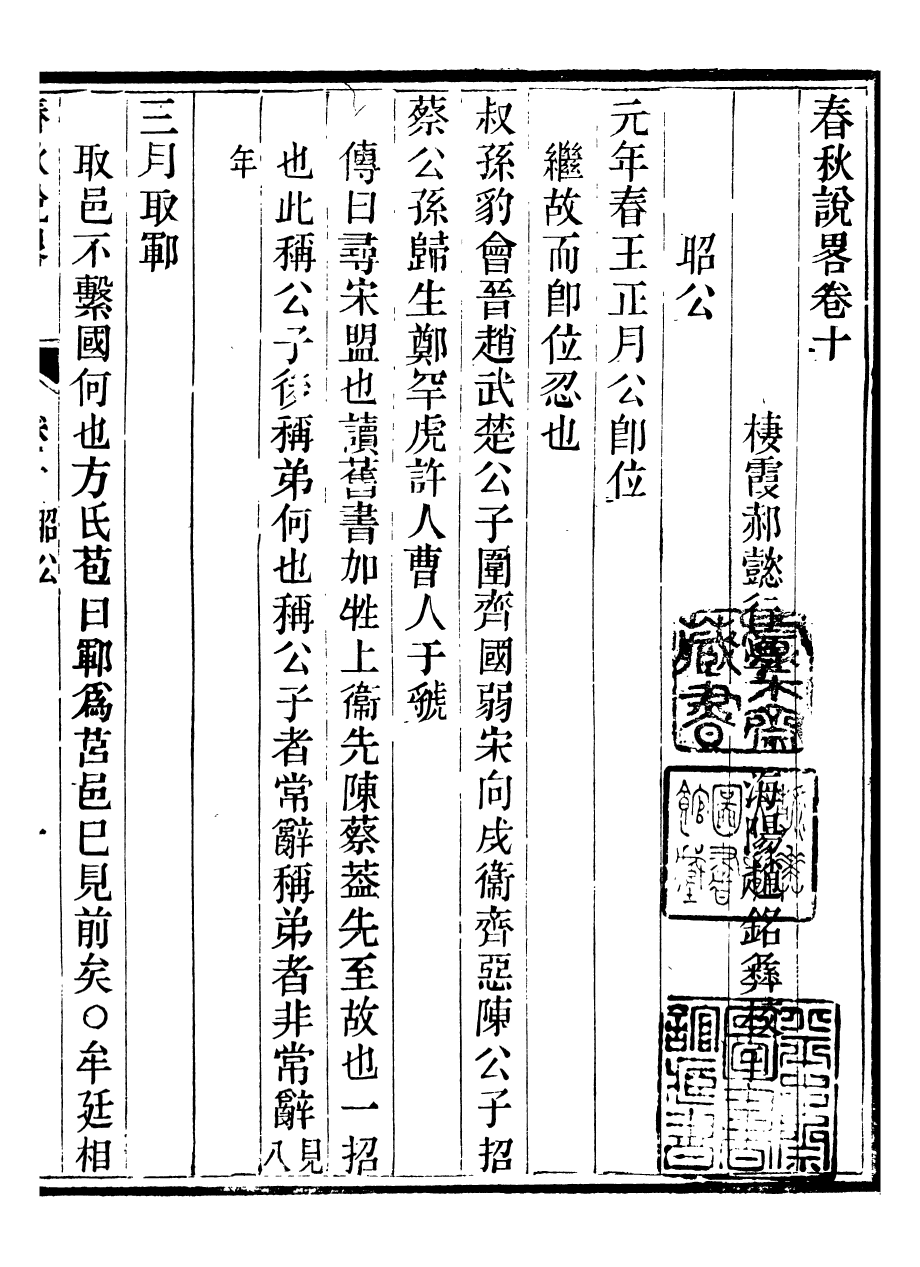 春秋說畧卷十
棲霞郝懿行 海陽趙銘彝校
昭公
元年春王正月公卽位
繼故而卽位忍也
叔孫豹會晉趙武楚公子圍齊國弱宋向戌衞齊惡陳公子招
蔡公孫歸生鄭罕虎許人曹人于虢
傳曰尋宋盟也讀舊書加牲上衞先陳蔡葢先至故也一招
也此稱公子後稱弟何也稱公子者常辭稱弟者非常辭見八
年
三月取鄆
取邑不繫國何也方氏苞曰鄆爲莒邑巳見前矣○牟廷相
春秋說畧 卷十 昭公 一